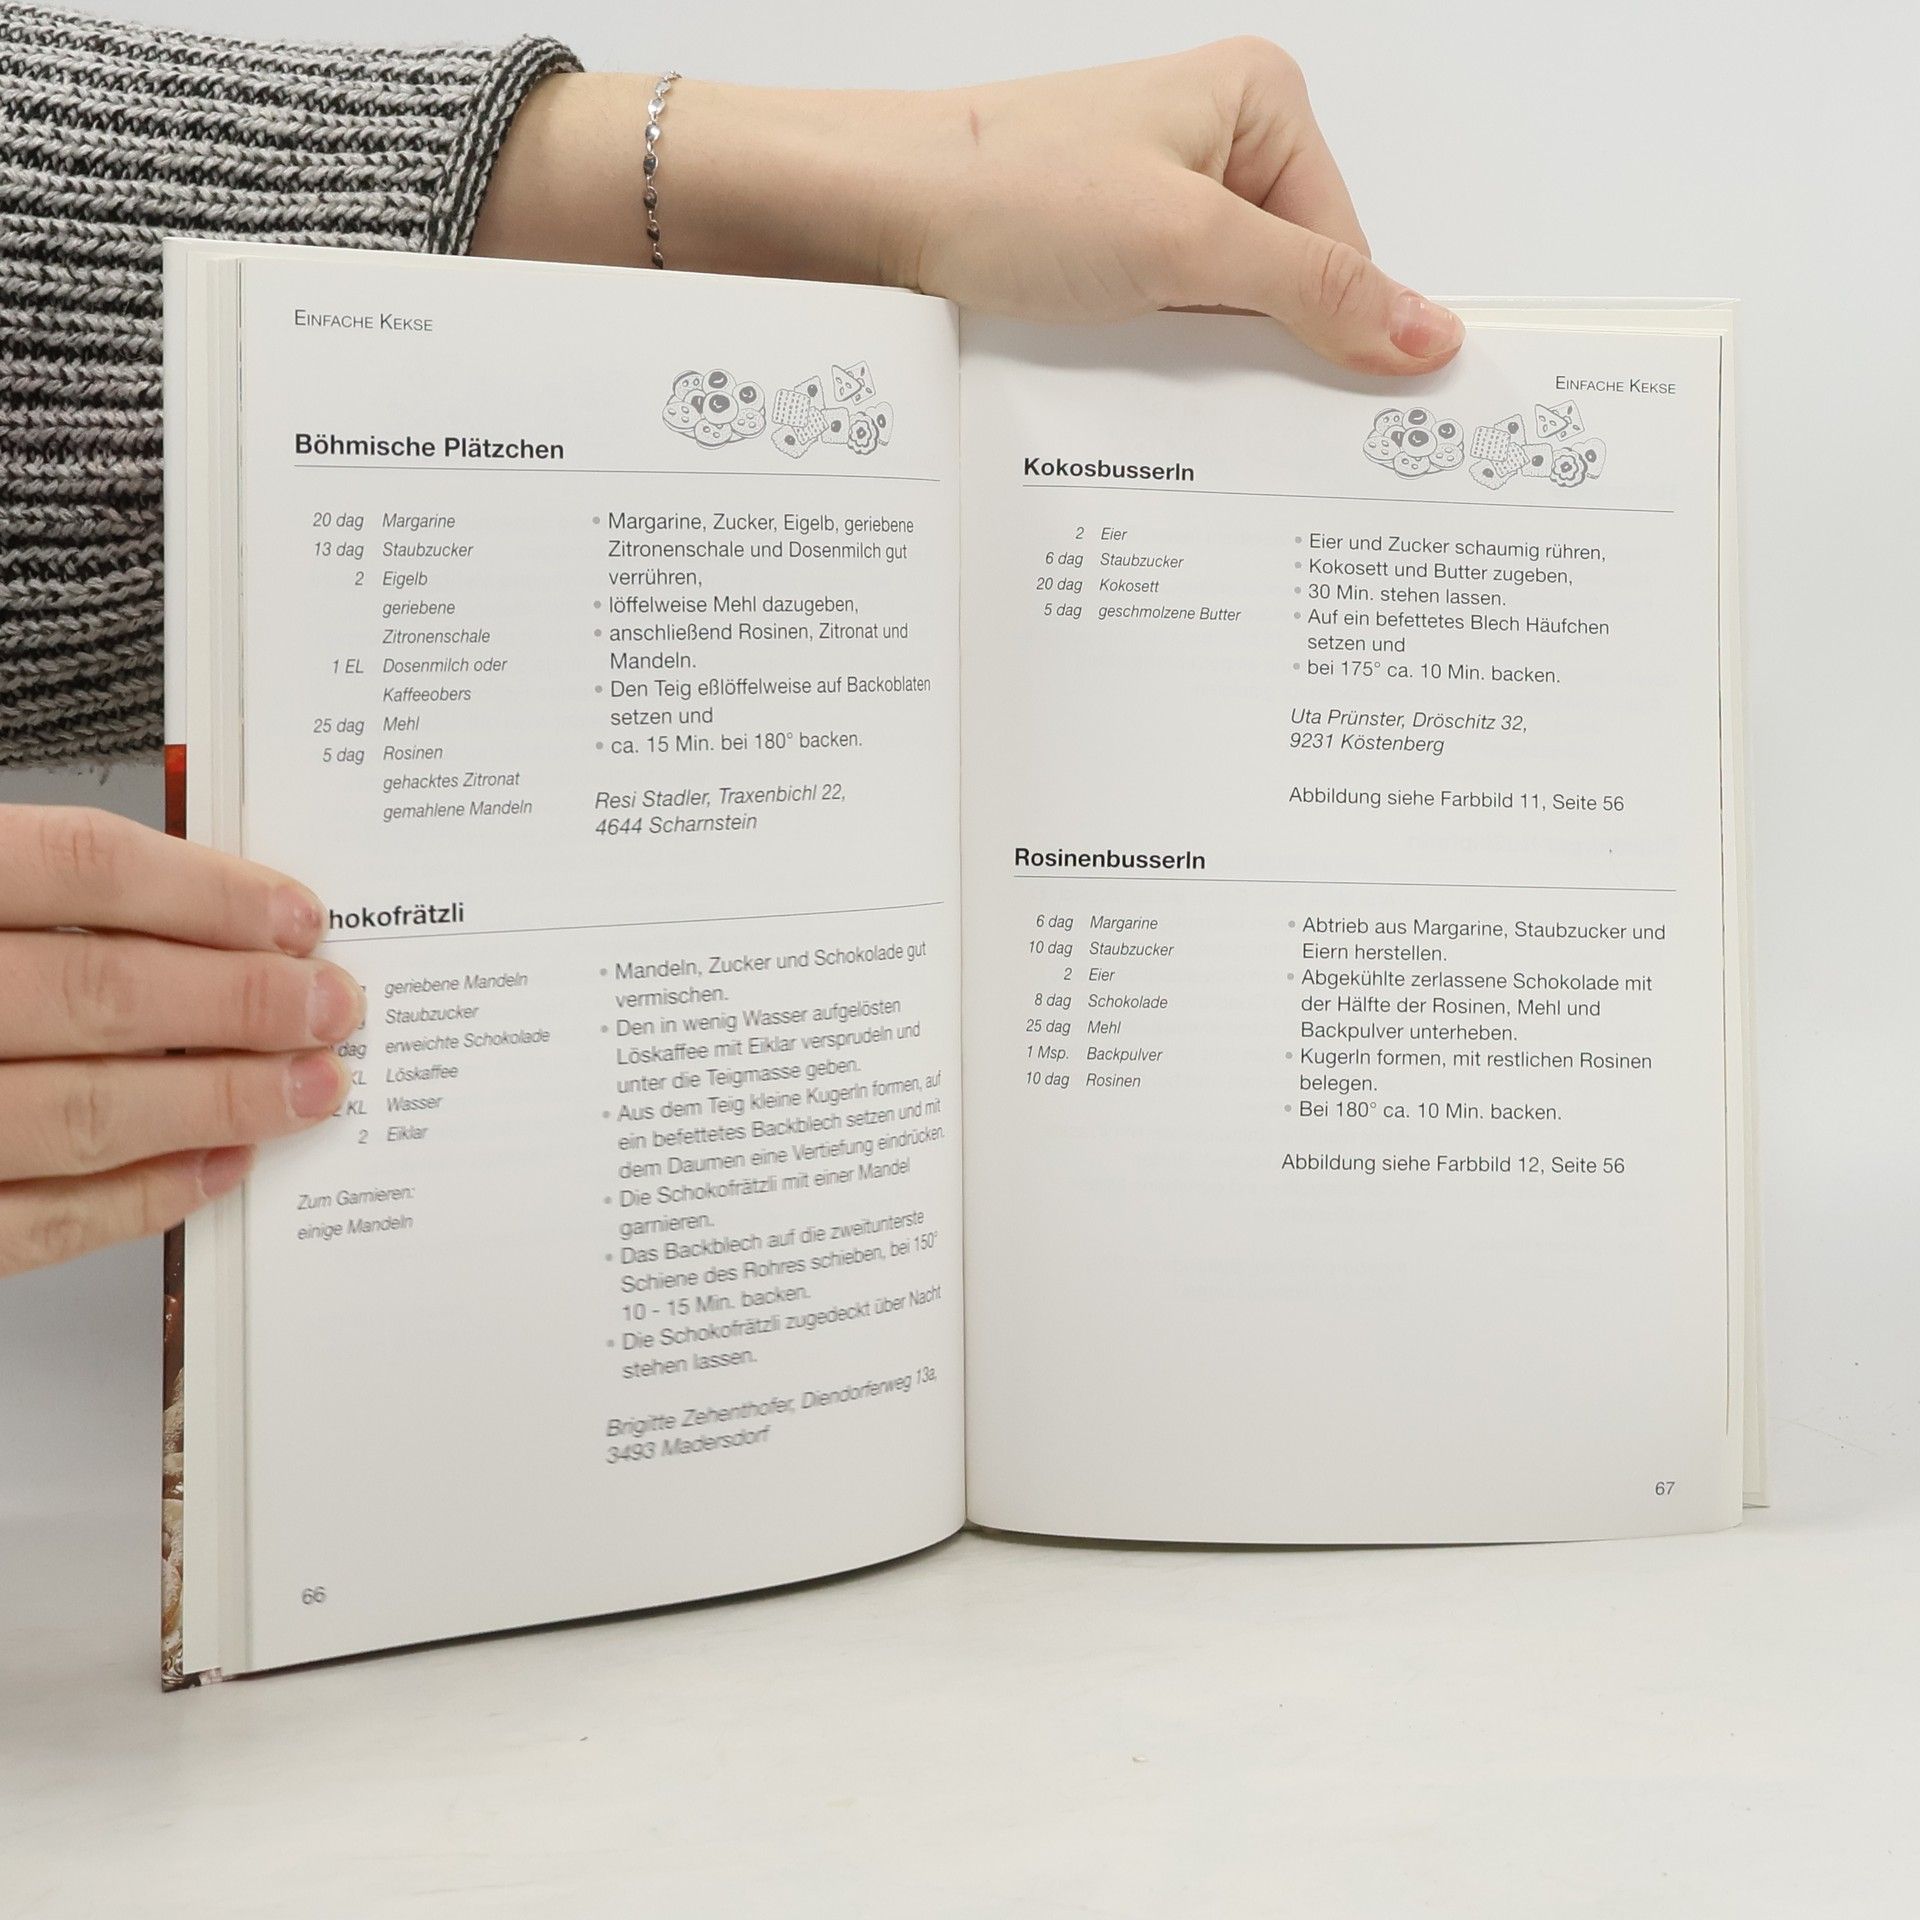 EINFACHE KEKSE
Böhmische Plätzchen
20 dag Margarine
13 dag Staubzucker
2 Eigelb
geriebene
Zitronenschale
1 EL Dosenmilch oder
Kaffeeobers
25 dag Mehl
5 dag Rosinen
gehacktes Zitronat
gemahlene Mandeln
• Margarine, Zucker, Eigelb, geriebene
Zitronenschale und Dosenmilch gut
verrühren,
• löffelweise Mehl dazugeben,
• anschließend Rosinen, Zitronat und
Mandeln.
• Den Teig eßlöffelweise auf Backoblaten
setzen und
• ca. 15 Min. bei 180° backen.
Resi Stadler, Traxenbichl 22,
4644 Scharnstein
hokofrätzli
geriebene Mandeln
Staubzucker
dag erweichte Schokolade
KL Löskaffee
KL Wasser
2 Eiklar
Zum Garnieren:
einige Mandeln
• Mandeln, Zucker und Schokolade gut
vermischen.
• Den in wenig Wasser aufgelösten
Löskaffee mit Eiklar versprudeln und
unter die Teigmasse geben.
• Aus dem Teig kleine Kugerln formen, auf
ein befettetes Backblech setzen und mit
dem Daumen eine Vertiefung eindrücken.
• Die Schokofrätzli mit einer Mandel
garnieren.
• Das Backblech auf die zweitunterste
Schiene des Rohres schieben, bei 150°
10 - 15 Min. backen.
• Die Schokofrätzli zugedeckt über Nacht
stehen lassen.
Brigitte Zehenthofer, Diendorferweg 13a,
3493 Madersdorf
66
EINFACHE KEKSE
Kokosbusserln
2 Eier
6 dag Staubzucker
20 dag Kokosett
5 dag geschmolzene Butter
• Eier und Zucker schaumig rühren,
• Kokosett und Butter zugeben,
• 30 Min. stehen lassen.
• Auf ein befettetes Blech Häufchen
setzen und
• bei 175° ca. 10 Min. backen.
Uta Prünster, Dröschitz 32,
9231 Köstenberg
Abbildung siehe Farbbild 11, Seite 56
Rosinenbusserln
6 dag Margarine
10 dag Staubzucker
2 Eier
8 dag Schokolade
25 dag Mehl
1 Msp. Backpulver
10 dag Rosinen
• Abtrieb aus Margarine, Staubzucker und
Eiern herstellen.
• Abgekühlte zerlassene Schokolade mit
der Hälfte der Rosinen, Mehl und
Backpulver unterheben.
• Kugerln formen, mit restlichen Rosinen
belegen.
• Bei 180° ca. 10 Min. backen.
Abbildung siehe Farbbild 12, Seite 56
67